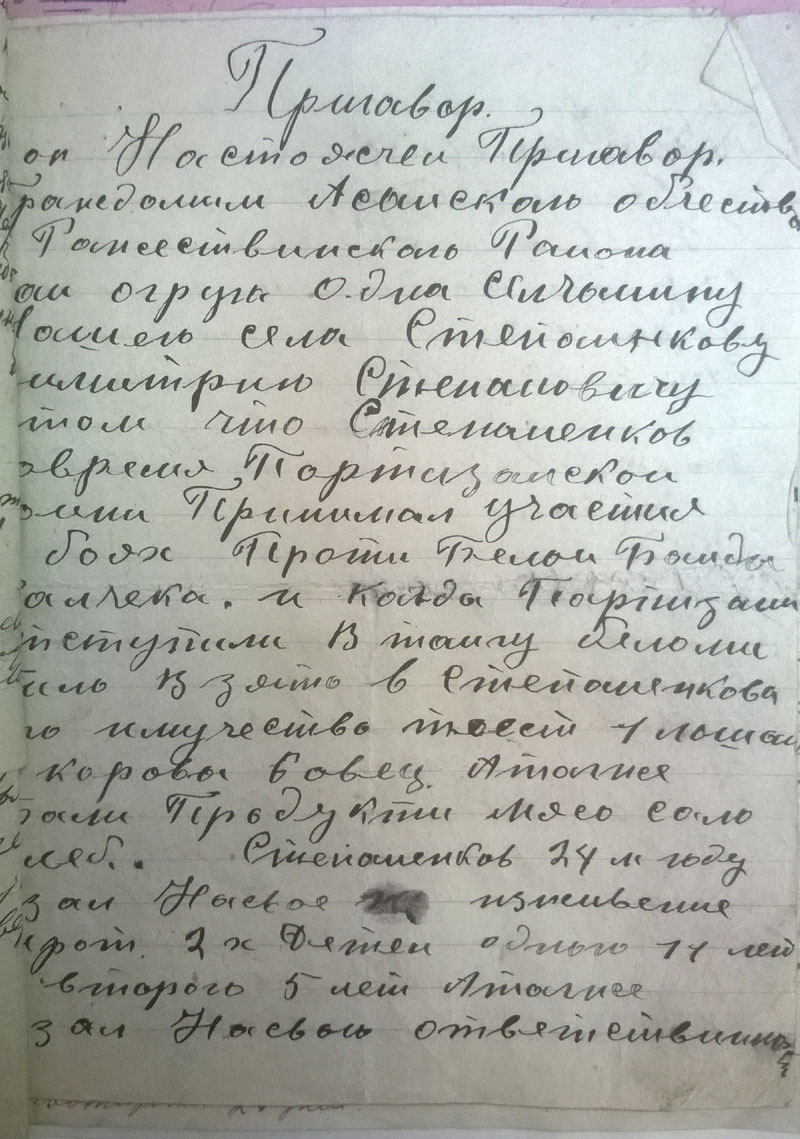 Пригавор.
он Настоясчеи Пригавор.
гражданим Асанскаго обчества
Рожественскаго Раиона
ам огруга Одна Селчьмину
нашего села Степоинкову
имитрию Степановичу
том что Степаненков
вовремя Портизанскои
оины Принимал участия
боях Проти Белои Банды
алчека. и когда Партизаны
тступили В таигу беломи
ыло Взято в Степаненкова
го имучество тоест 1 лошад
корова 6 овец. Атагже
зали Продукти мясо сало
леб. Степаненков 24 м году
зал Насвое изживение
ирот. 2 х Детеи одного 11 лет
второго 5 лет Атагже
зал Насвою ответственнос